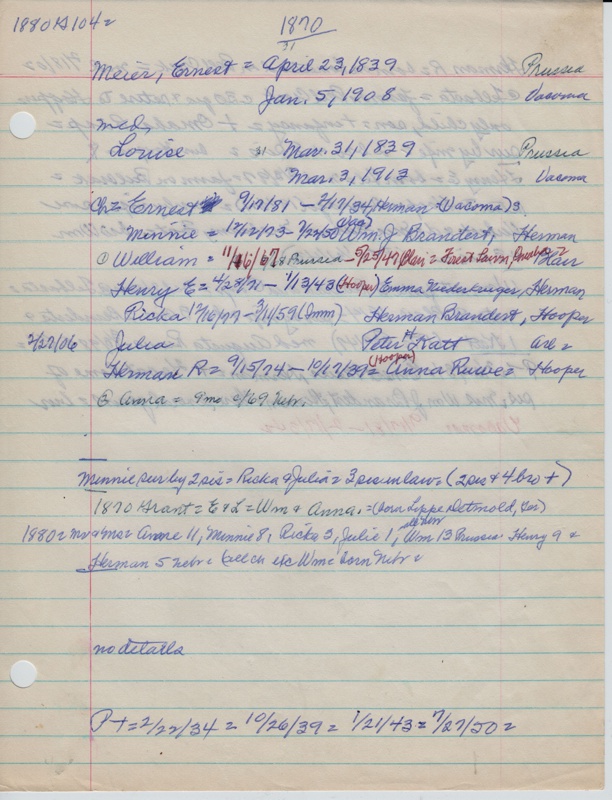 1880 G 104=
1870
31
Meier, Ernest = April 23, 1839 Prussia
Jan. 5, 1908 Vacoma
med,
Louise Mar. 31, 1839 Prussia
Mar. 3, 1913 Vacoma
Ch= Ernest 9/17/81 - 2/17/34 (Herman Vacoma) 3
Minnie = 12/12/73 - 7/24/50 (Vac) Wm. J Brandert, Herman
William = 11/16/67 Prussia - 5/25/47 Forest Lawn, Blair
Henry E = 4/28/71 - 1/13/43 (Hooper) Emma Niederkruger, Herman
Ricka 12/16/77 - 3/11/59 (Imm) Herman Brandert, Hooper
2/27/06 Julia Peter H Katt are =
Herman R = 9/15/74 - 10/17/39 = (Hooper) Anna Ruwe = Hooper
Anna = 9mo 6/69 Nebr.
Minnie sur by 2 sis = Ricka & Julia = 3 sis in law = (2 sis & 4 bro +)
1870 Grant = E & L = Wm & Anna. = (born Lippe Detmold, Ger)
1880 = Mr & Mrs = Anna 11, Minnie 8, Ricka 3, Julie 1, Wm 13 Prussia Henry 9 &
Herman 5 Nebr = (etc Wm = born Nebr =
no details
P + = 2/22/34 = 10/26/39 = 1/21/43 = 7/27/50 =